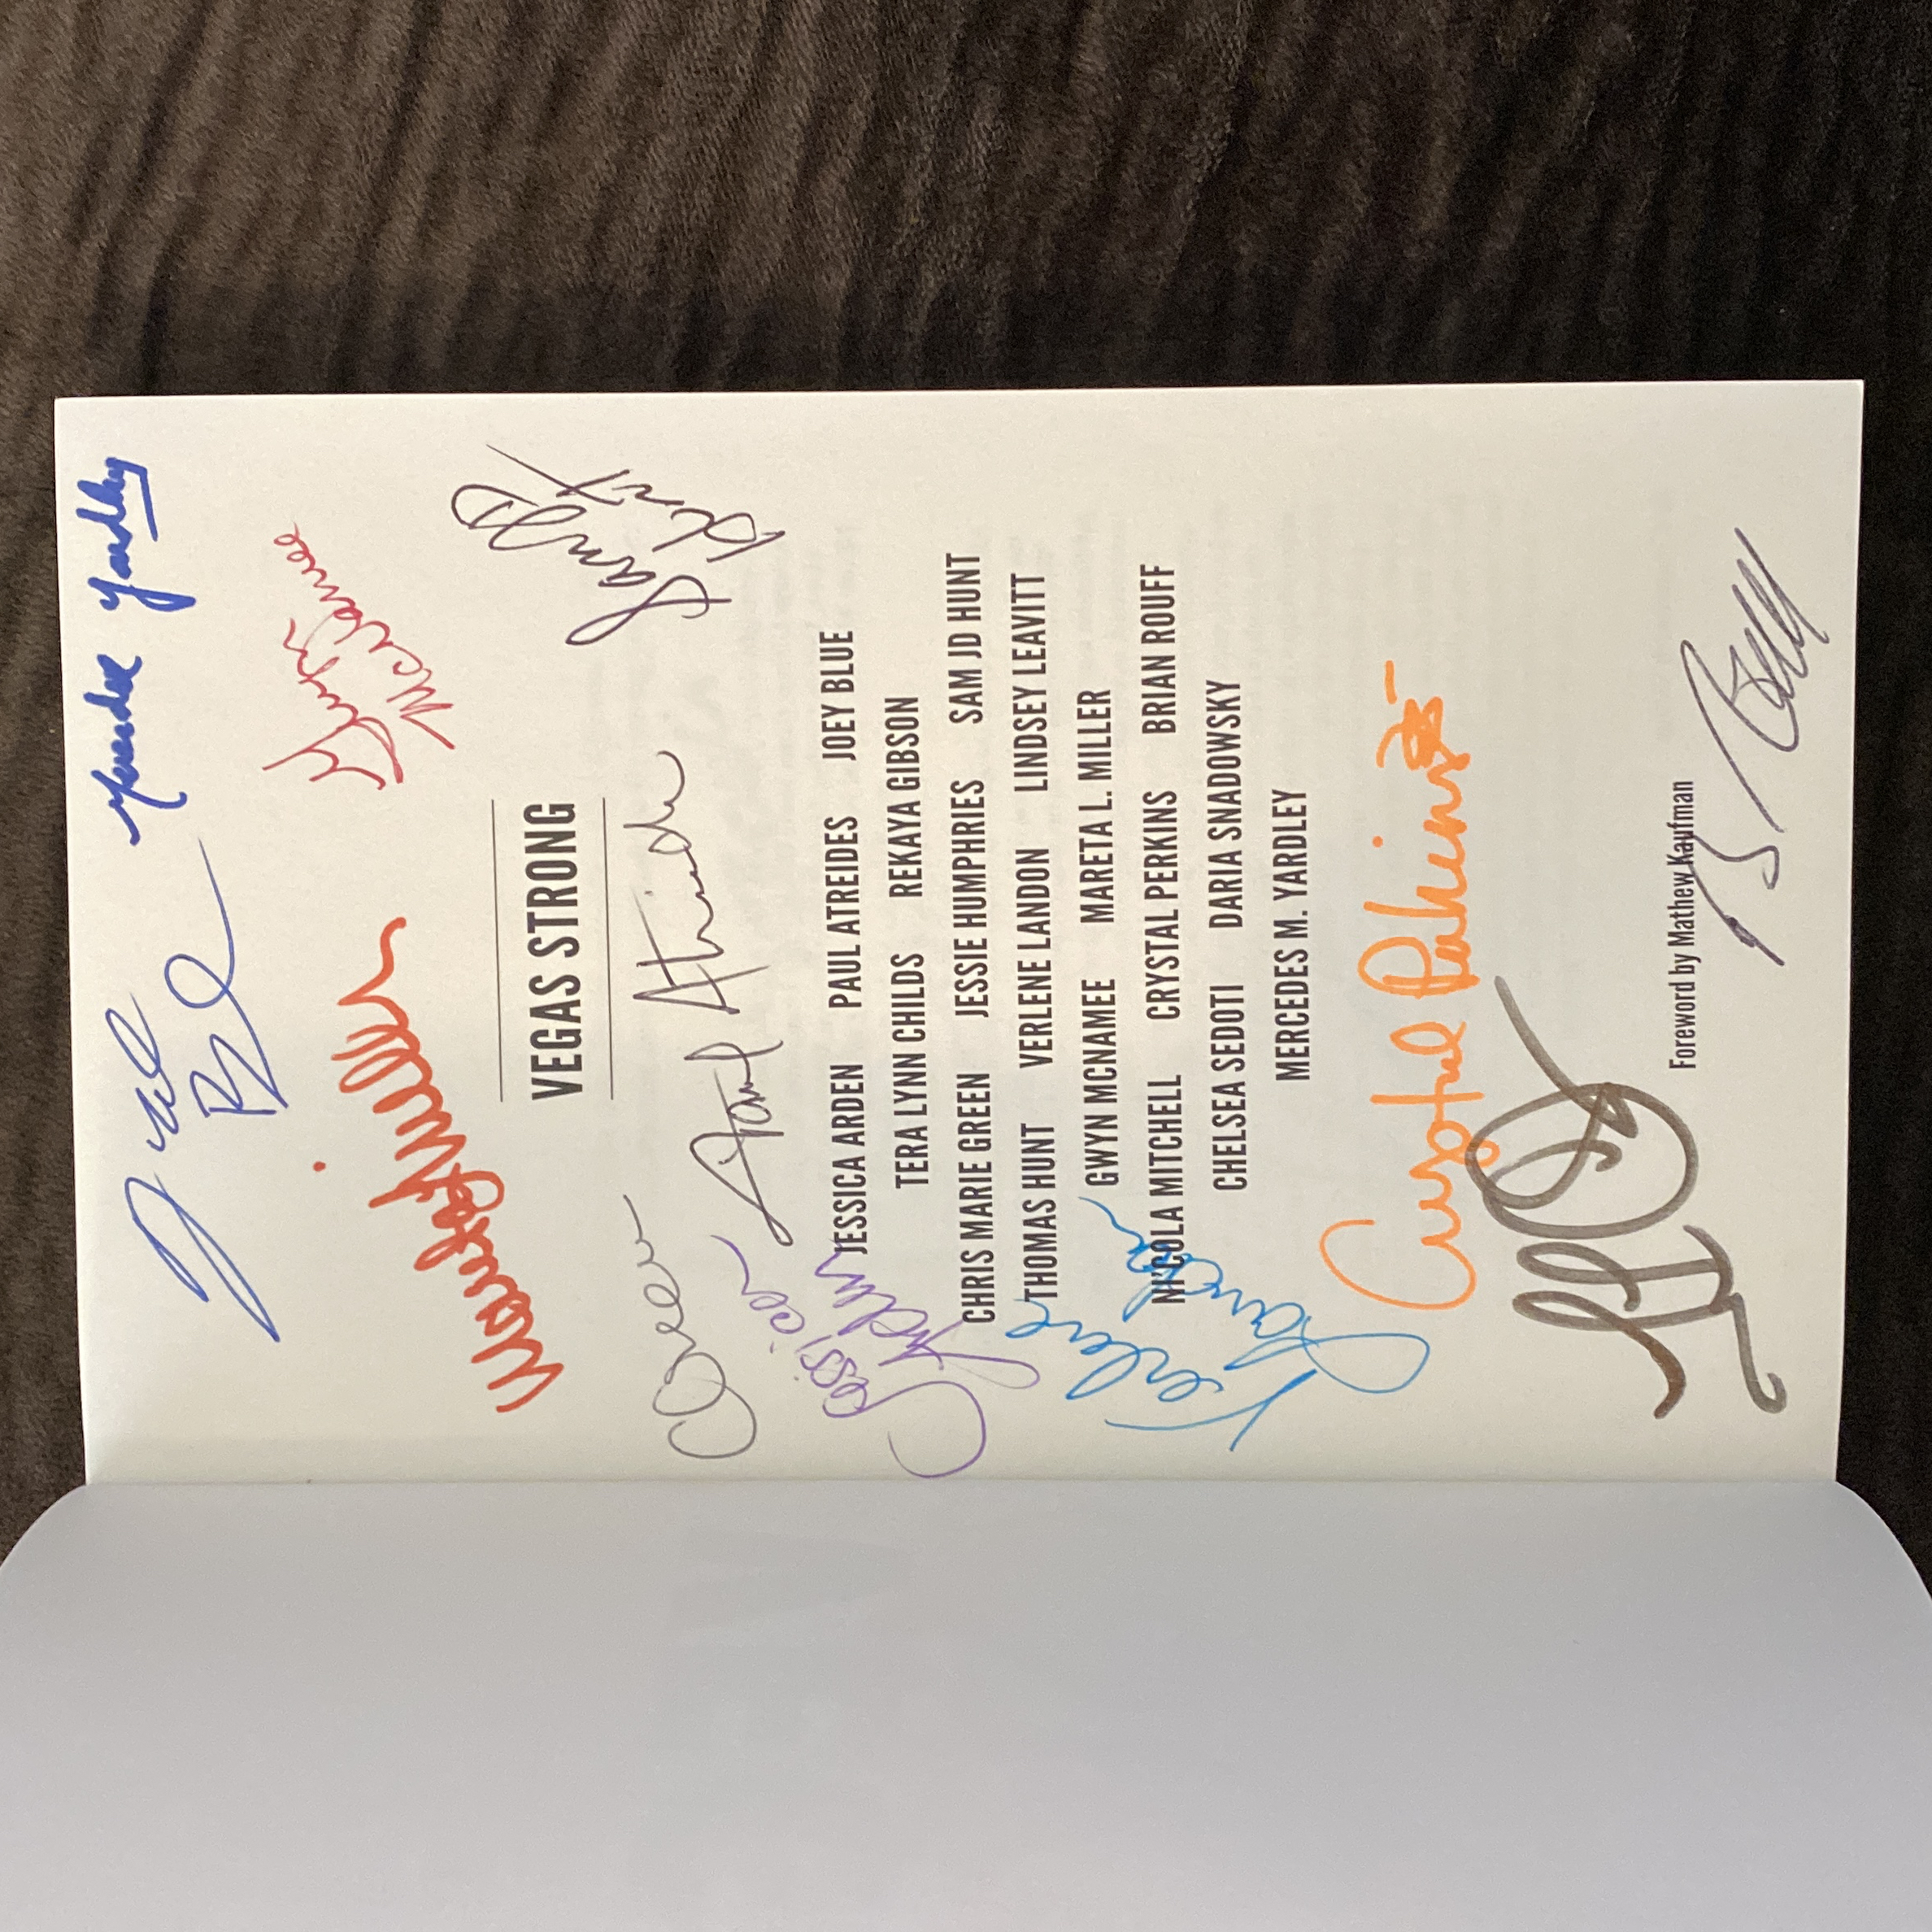 Mercedes Yardley
Joey Blue
Gwyn
McNamee
Mareta Miller
Sam JD
Hunt
VEGAS STRONG
Paul Atreides
Jessica
Arden
JESSICA ARDEN PAUL ATREIDES JOEY BLUE
TERA LYNN CHILDS REKAYA GIBSON
CHRIS MARIE GREEN JESSIE HUMPHRIES SAM JD HUNT
THOMAS HUNT VERLENE LANDON LINDSEY LEAVITT
GWYN MCNAMEE MARETA L. MILLER
NICOLA MITCHELL CRYSTAL PERKINS BRIAN ROUFF
CHELSEA SEDOTI DARIA SNADOWSKY
MERCEDES M. YARDLEY
Verlene
Landon
Crystal Perkins
Foreword by Mathew Kaufman